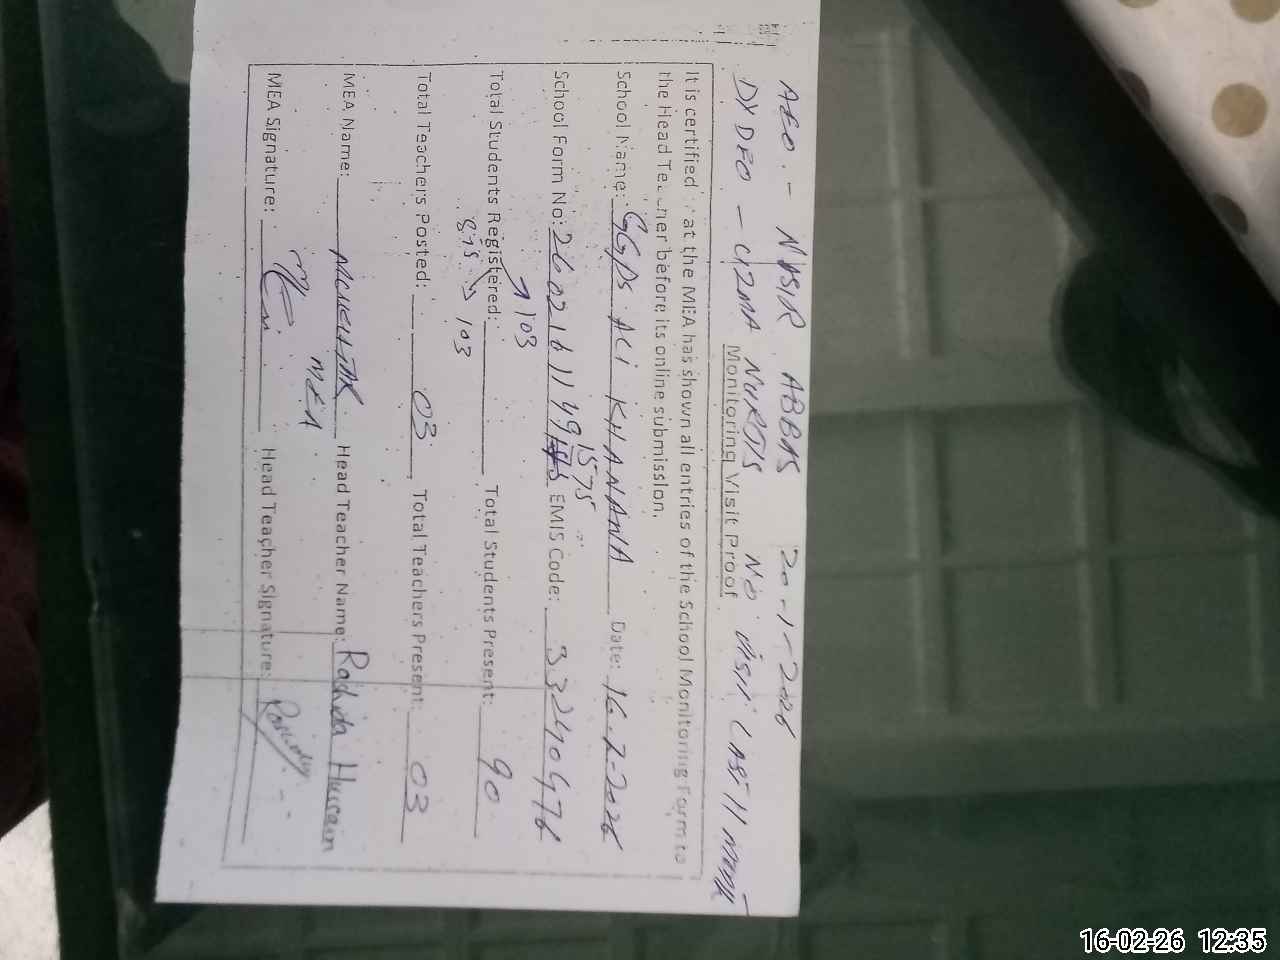 AEO. - NASIR ABBAS 20-1-2026
DYDEO - UZMA NURGIS NO VISIT LAST 11 MONTH
Monitoring Visit Proof
It is certified that the MEA has shown all entries of the School Monitoring Form to
the Head Teacher before its online submission.
School Name: GGPS ALI KHANANA Date: 16-2-2026
1575
School Form No: 260216 1149 EMIS Code: 33240476
103
Total Students Registered: Total Students Present: 90
103
Total Teachers Posted: 03, Total Teachers Present: 03
MEA Name: Head Teacher Name: Rashida Hussain
MEA
MEA Signature: Head Teacher Signature:
16-02-26 12:35